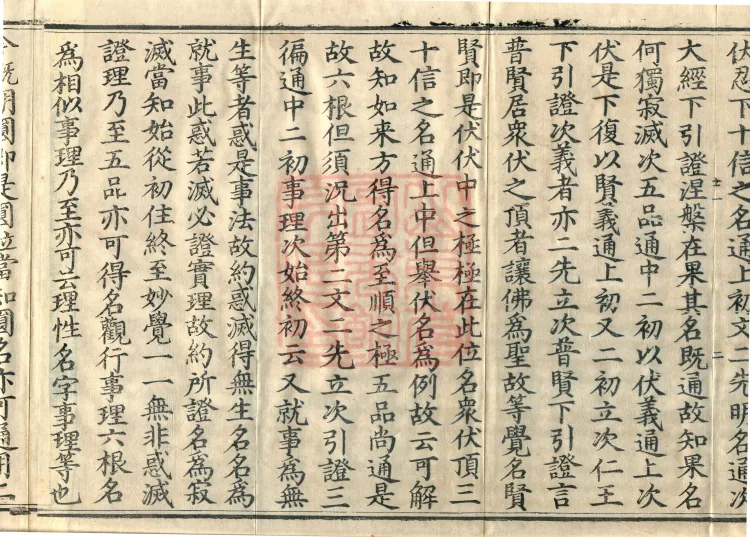 伏忍下十信之名通上初文二先明名通次
大經下引證涅槃在果其名既通故知果名
何獨寂滅次五品通中二初以伏義通上次
伏是下復以賢義通上初又二初立次仁王
下引證次義者亦二先立次普賢下引證言
普賢居衆伏之頂者讓佛為聖故等覺名賢
賢即是伏伏中之極極在此位名衆伏頂三
十信之名通上中但舉伏名為例故云可解
故知如来方得名為至順之極五品尚通是
故六根但須況出第二文二先立次引證三
徧通中二初事理次始終初云又就事為無
生等者惑是事法故約惑滅得無生名名為
就事此惑若滅必證實理故約所證名為寂
滅當知始從初住終至妙覺一一無非惑滅
證理乃至五品亦可得名觀行事理六根名
為相似事理乃至亦可云理性名字事理等也
今既明圓即是圓位當知圓名亦可通用二